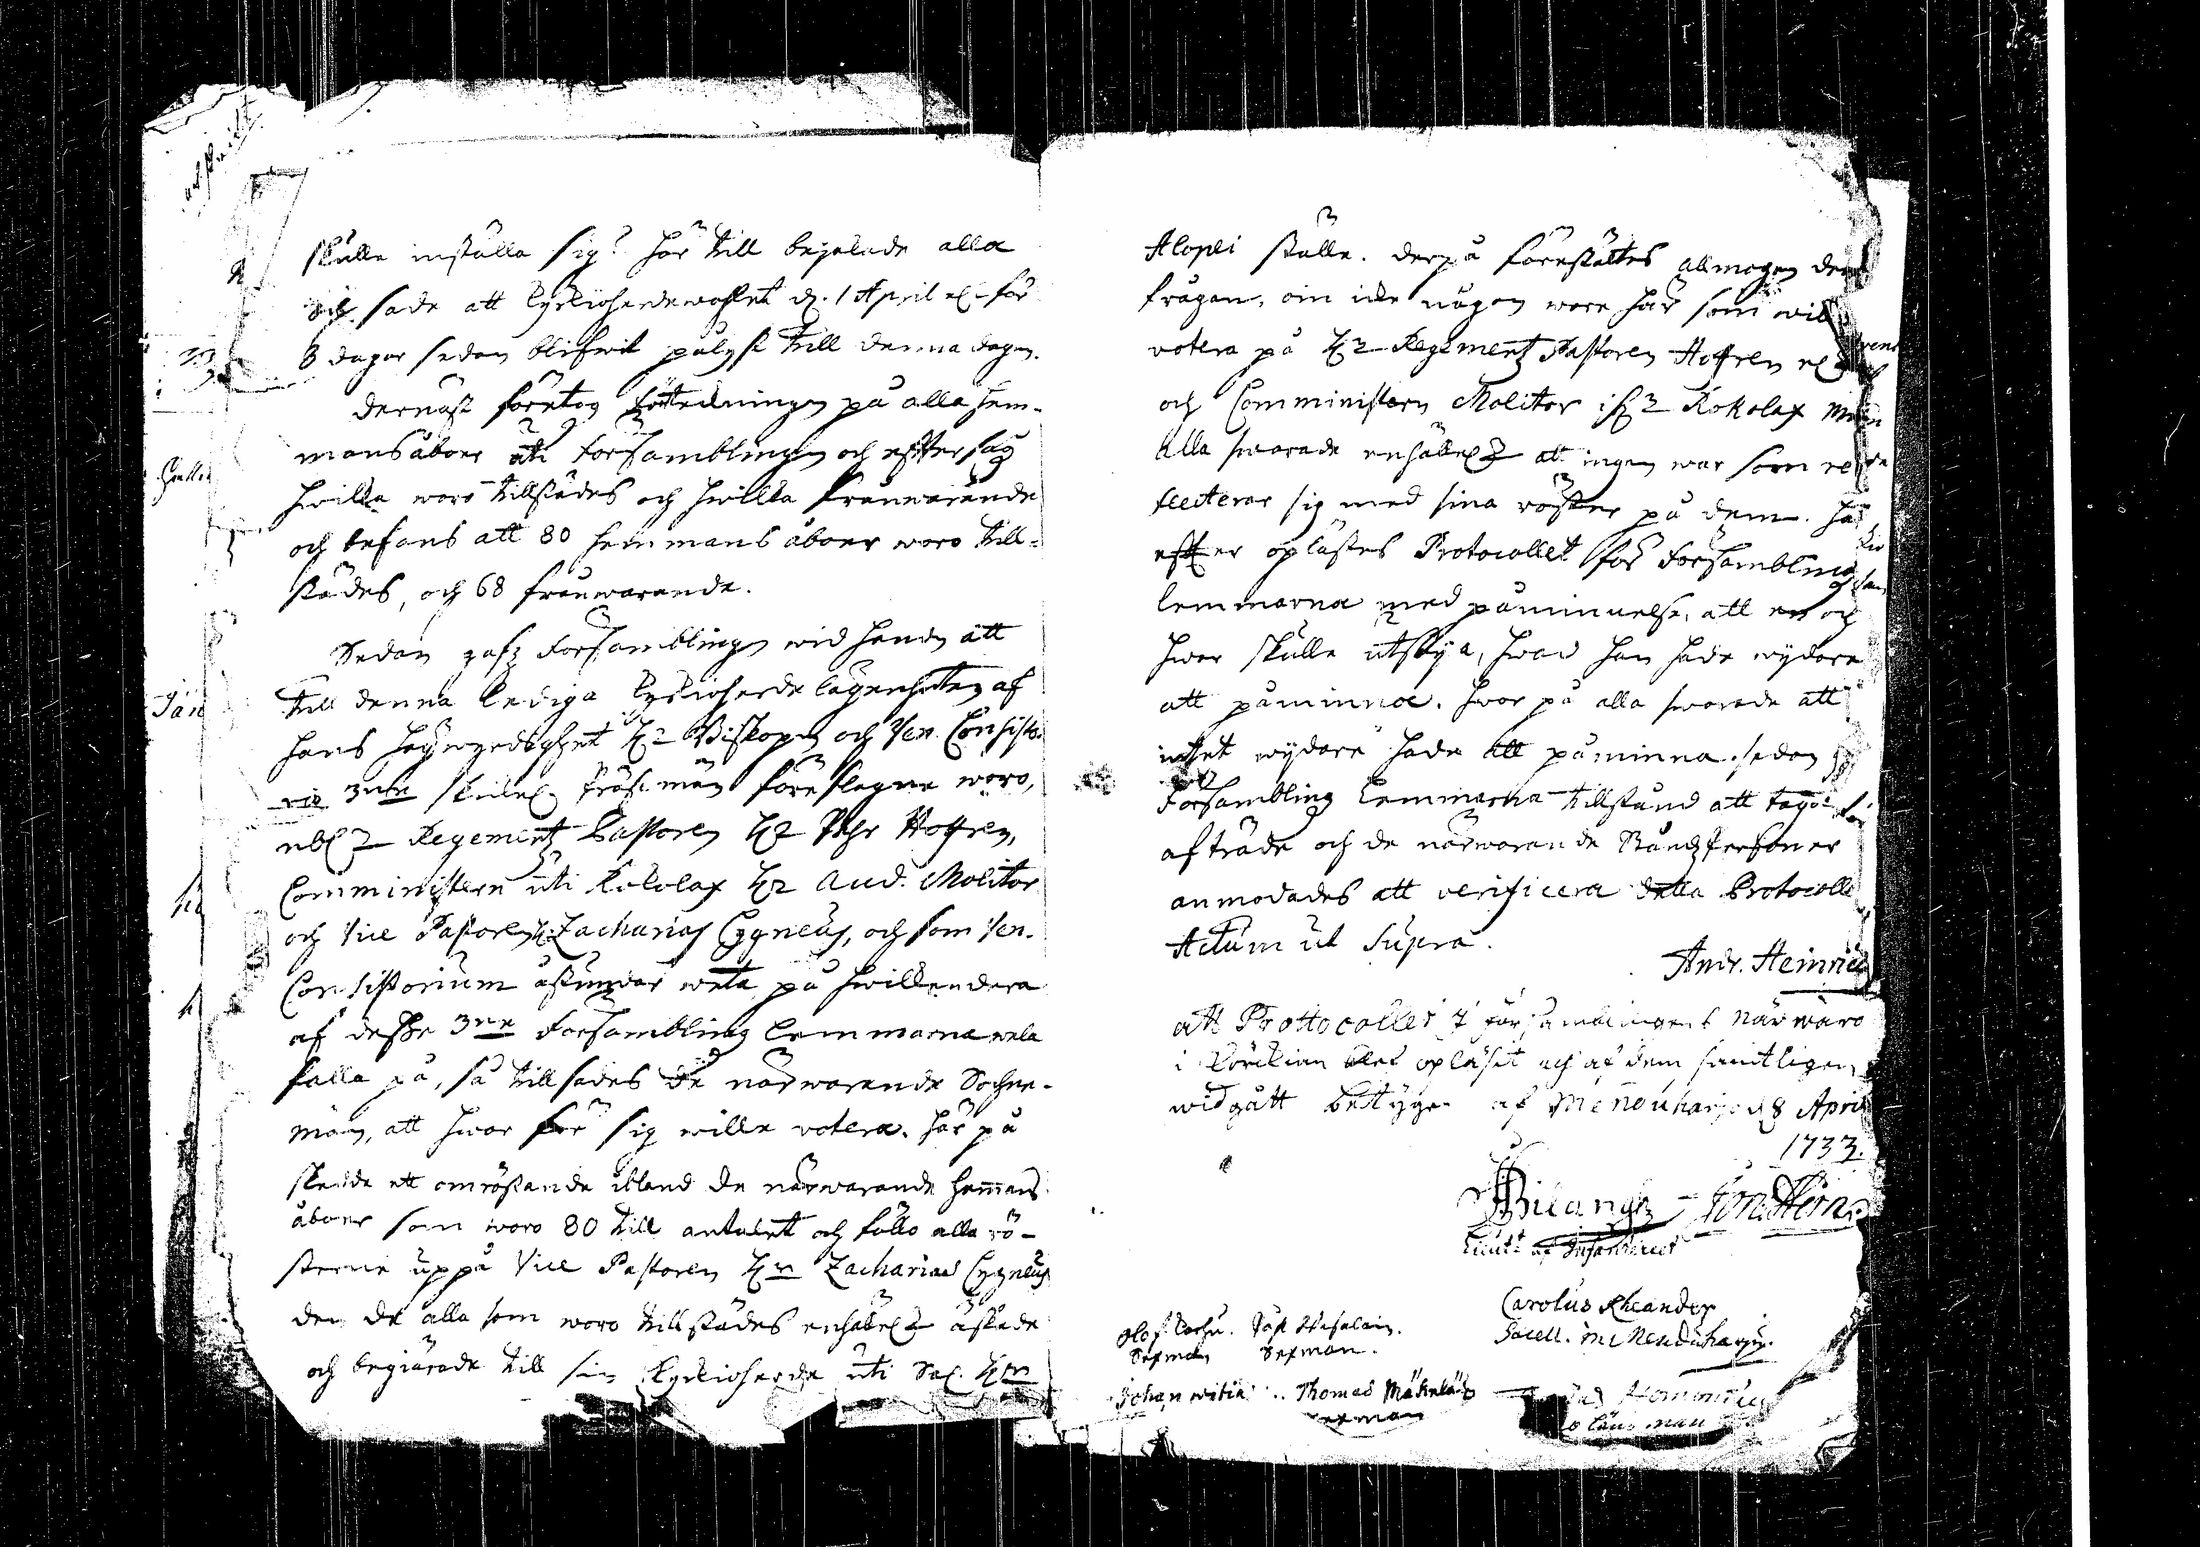 skulle inställa sig? här till bejakade alla
och sade att kyrkioherdewahlet d. 1 April el. för
8 dagar sedan blifwit pålyst till denna dagen.
dernäst företog förrättningen på alla hem-
mansåboer uti Församblingen och efftersåg
hwilka woro tillstädes och hwilka frånwarande
och befans att 80 hemmans åboer woro till-
städes, och 68 frånwarande.
Sedan gafz Församblingen wid handen att
till denna lediga kyrkioherde lägenheten af
hans högwyrdighet Hr Biskopen och Ven. Consisto-
rio 3ne skickel. Präst män föreslagne woro,
nbl. Regementz Pastoren Hr Pehr Hoffren,
Comministern uti Kokolax Hr And. Molitor
och Vice Pastoren H. Zacharias Cygneus, och som Ven.
Consistorium åstundar weta på hwilkendera
af desse 3ne Församblings lemmarna wela
falla på, så tillsades de närwarande Sochne-
män, att hwar för sig wille votera. här på
skedde ett omröstande ibland de närwarande hemans
åboer som woro 80 till antalet och föllo alla rö-
sterne uppå Vice Pastoren Hrn Zacharias Cygneus
den de alla som woro tillstädes enhällel. åskade
och begiärade till sin kyrkioherde uti Sal. Hrn
Alopæi ställe. derpå föreställtes allmogen den
frågan, om icke någon wore här som will
votera på Hr Regementz Pastoren Hoffren el.
och Comministern Molitor ifr. Kokolax
alla swarade enhällel. att ingen war som re
flecterar sig med sina röster på dem. Här
effter oplästes Protocollet för Församblings
lemmarna med påminnelse, att en och
hwar skulle utsäya, hwad han hade wydare
att påminna. hwar på alla swarade att
intet wydare hade att påminna. sedan
Församblings lemmarna tillstånd att taga
afträde och de närwarande Ståndz Personer
anmodades att verificera detta Protocoll
Actum ut Supra.
Andr. Heinric
att Prottocollet i församblingens närwaro
i Körckian blef opläsit och af dem samtligen
widgått betyger af Menduharju d 8 April
1733.
Bilangh
Lieut: af Infanteriet
Carolus Rheander
Sacell. in Menduharju.
Olof
Sexman Sexman.
Johan Thomas
Sexman
länsman